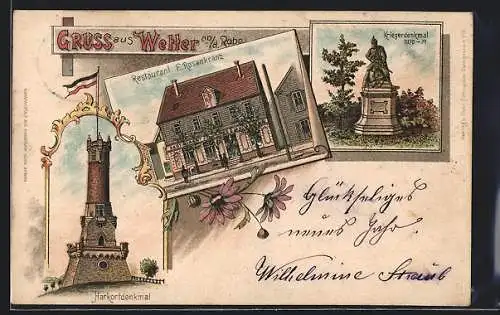 GRUSS aus Wetter a/d. Ruhr.
Restaurant F. Rosenkranz
Kriegerdenkmal
1870-71
Harkortdenkmal
Glückseliges
neues Jahr.
Wilhelmine Straub